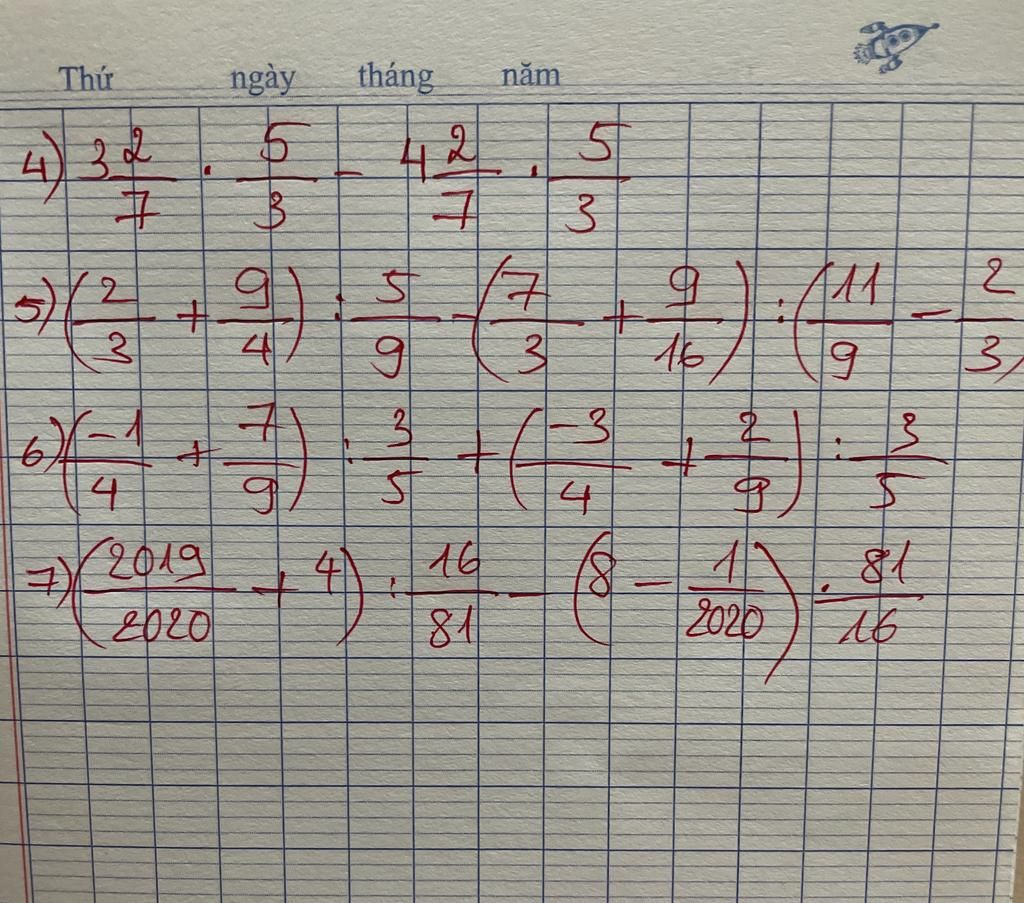 Thứ ngày tháng năm
4) 3 2/7 . 5/3 - 4 2/7 . 5/3
5) (2/3 + 9/4) : 5/9 - (7/3 + 9/16) : (11/9 - 2/3)
6) (-1/4 + 7/9) : 3/5 + (-3/4 + 2/9) : 3/5
7) (2019/2020 + 4) : 16/81 - (8 - 1/2020) . 81/16